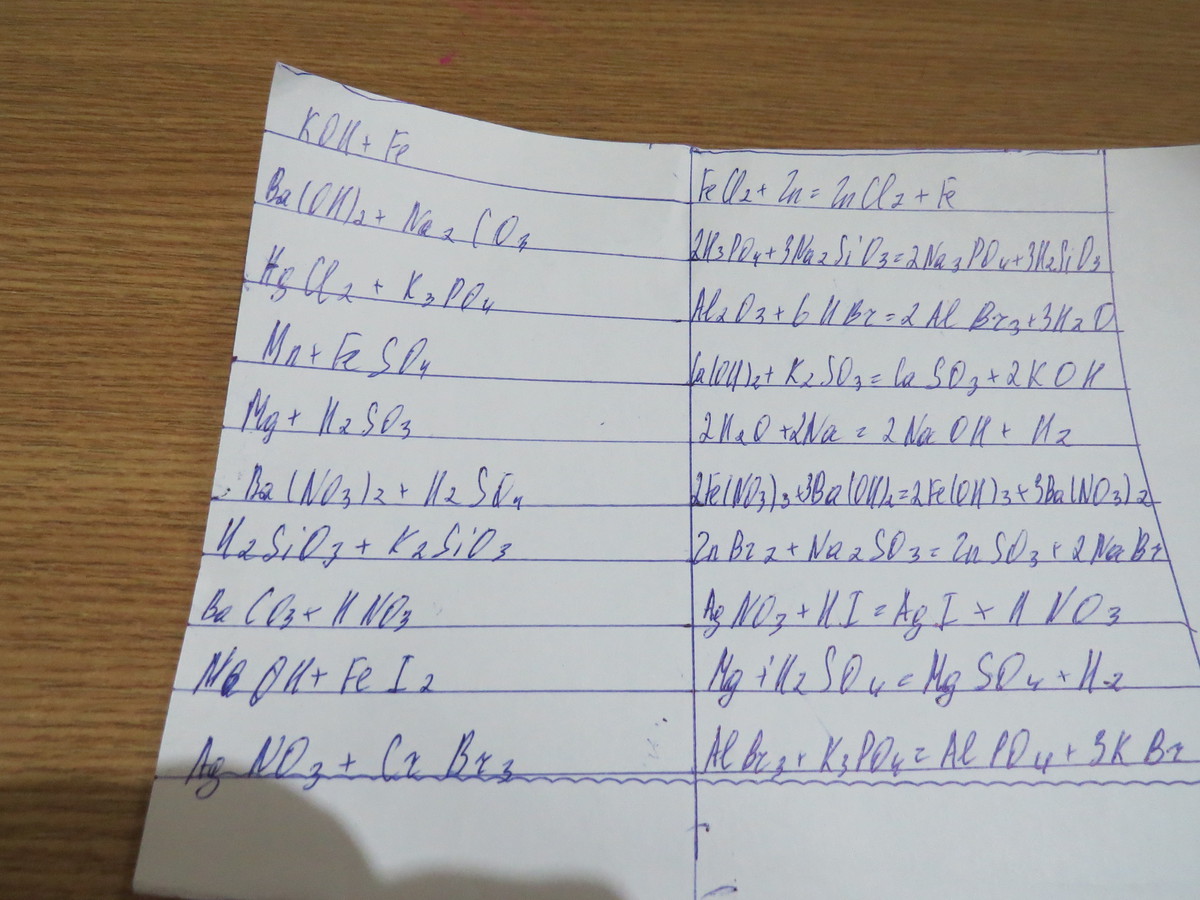 KOH + Fe
Ba(OH)2 + Na2CO3
HgCl2 + K3PO4
Mn + FeSO4
Mg + H2SO3
Ba(NO3)2 + H2SO4
H2SiO3 + K2SiO3
BaCO3 + HNO3
NaOH + FeI2
AgNO3 + CrBr3
FeCl2 + Zn = ZnCl2 + Fe
2H3PO4 + 3Na2SiO3 = 2Na3PO4 + 3H2SiO3
Al2O3 + 6HBr = 2AlBr3 + 3H2O
Ca(OH)2 + K2SO3 = CaSO3 + 2KOH
2H2O + 2Na = 2NaOH + H2
2Fe(NO3)3 + 3Ba(OH)2 = 2Fe(OH)3 + 3Ba(NO3)2
ZnBr2 + Na2SO3 = ZnSO3 + 2NaBr
AgNO3 + HI = AgI + HNO3
Mg + H2SO4 = MgSO4 + H2
AlBr3 + K3PO4 = AlPO4 + 3KBr